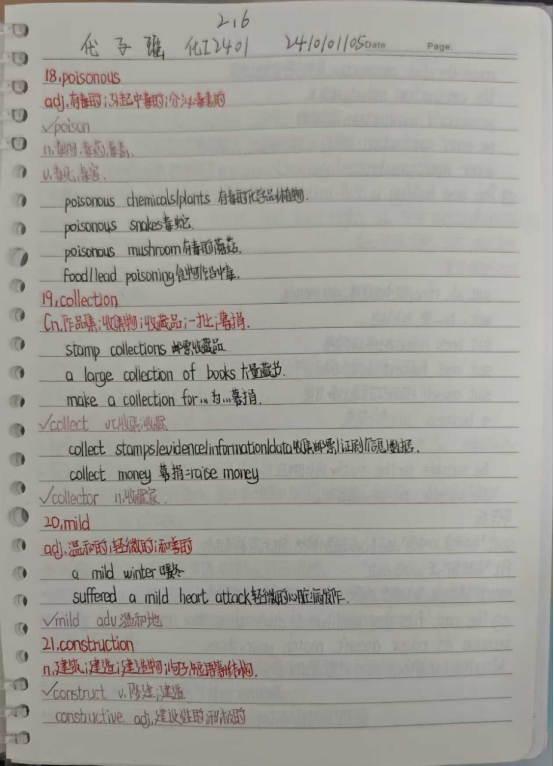 2,6
代子雅 化工2401 2410101105 Date Page.
18,poisonous
adj.有毒的;引起中毒的;分泌毒素的
✓poison
n.毒物,毒药,毒素;
v.毒死;毒害.
poisonous chemicals/plants 有毒的化学品/植物.
poisonous snakes毒蛇.
poisonous mushroom有毒的蘑菇.
food/lead poisoning食物/铅中毒.
19,collection
Cn.作品集;收集物;收藏品;一批;募捐.
stamp collections 邮票收藏品
a large collection of books 大量藏书.
make a collection for... 为...募捐.
✓collect vt.收集;收藏
collect stamps/evidence/information/data收集邮票/证据/信息/数据.
collect money 募捐=raise money
✓collector n.收藏家.
20,mild
adj.温和的;轻微的;和善的
a mild winter 暖冬
suffered a mild heart attack轻微的心脏病发作.
✓mild adv.温和地
21.construction
n,建筑;建造;建造物;句子,短语等结构.
✓construct v.修建;建造
constructive adj,建设性的;积极的